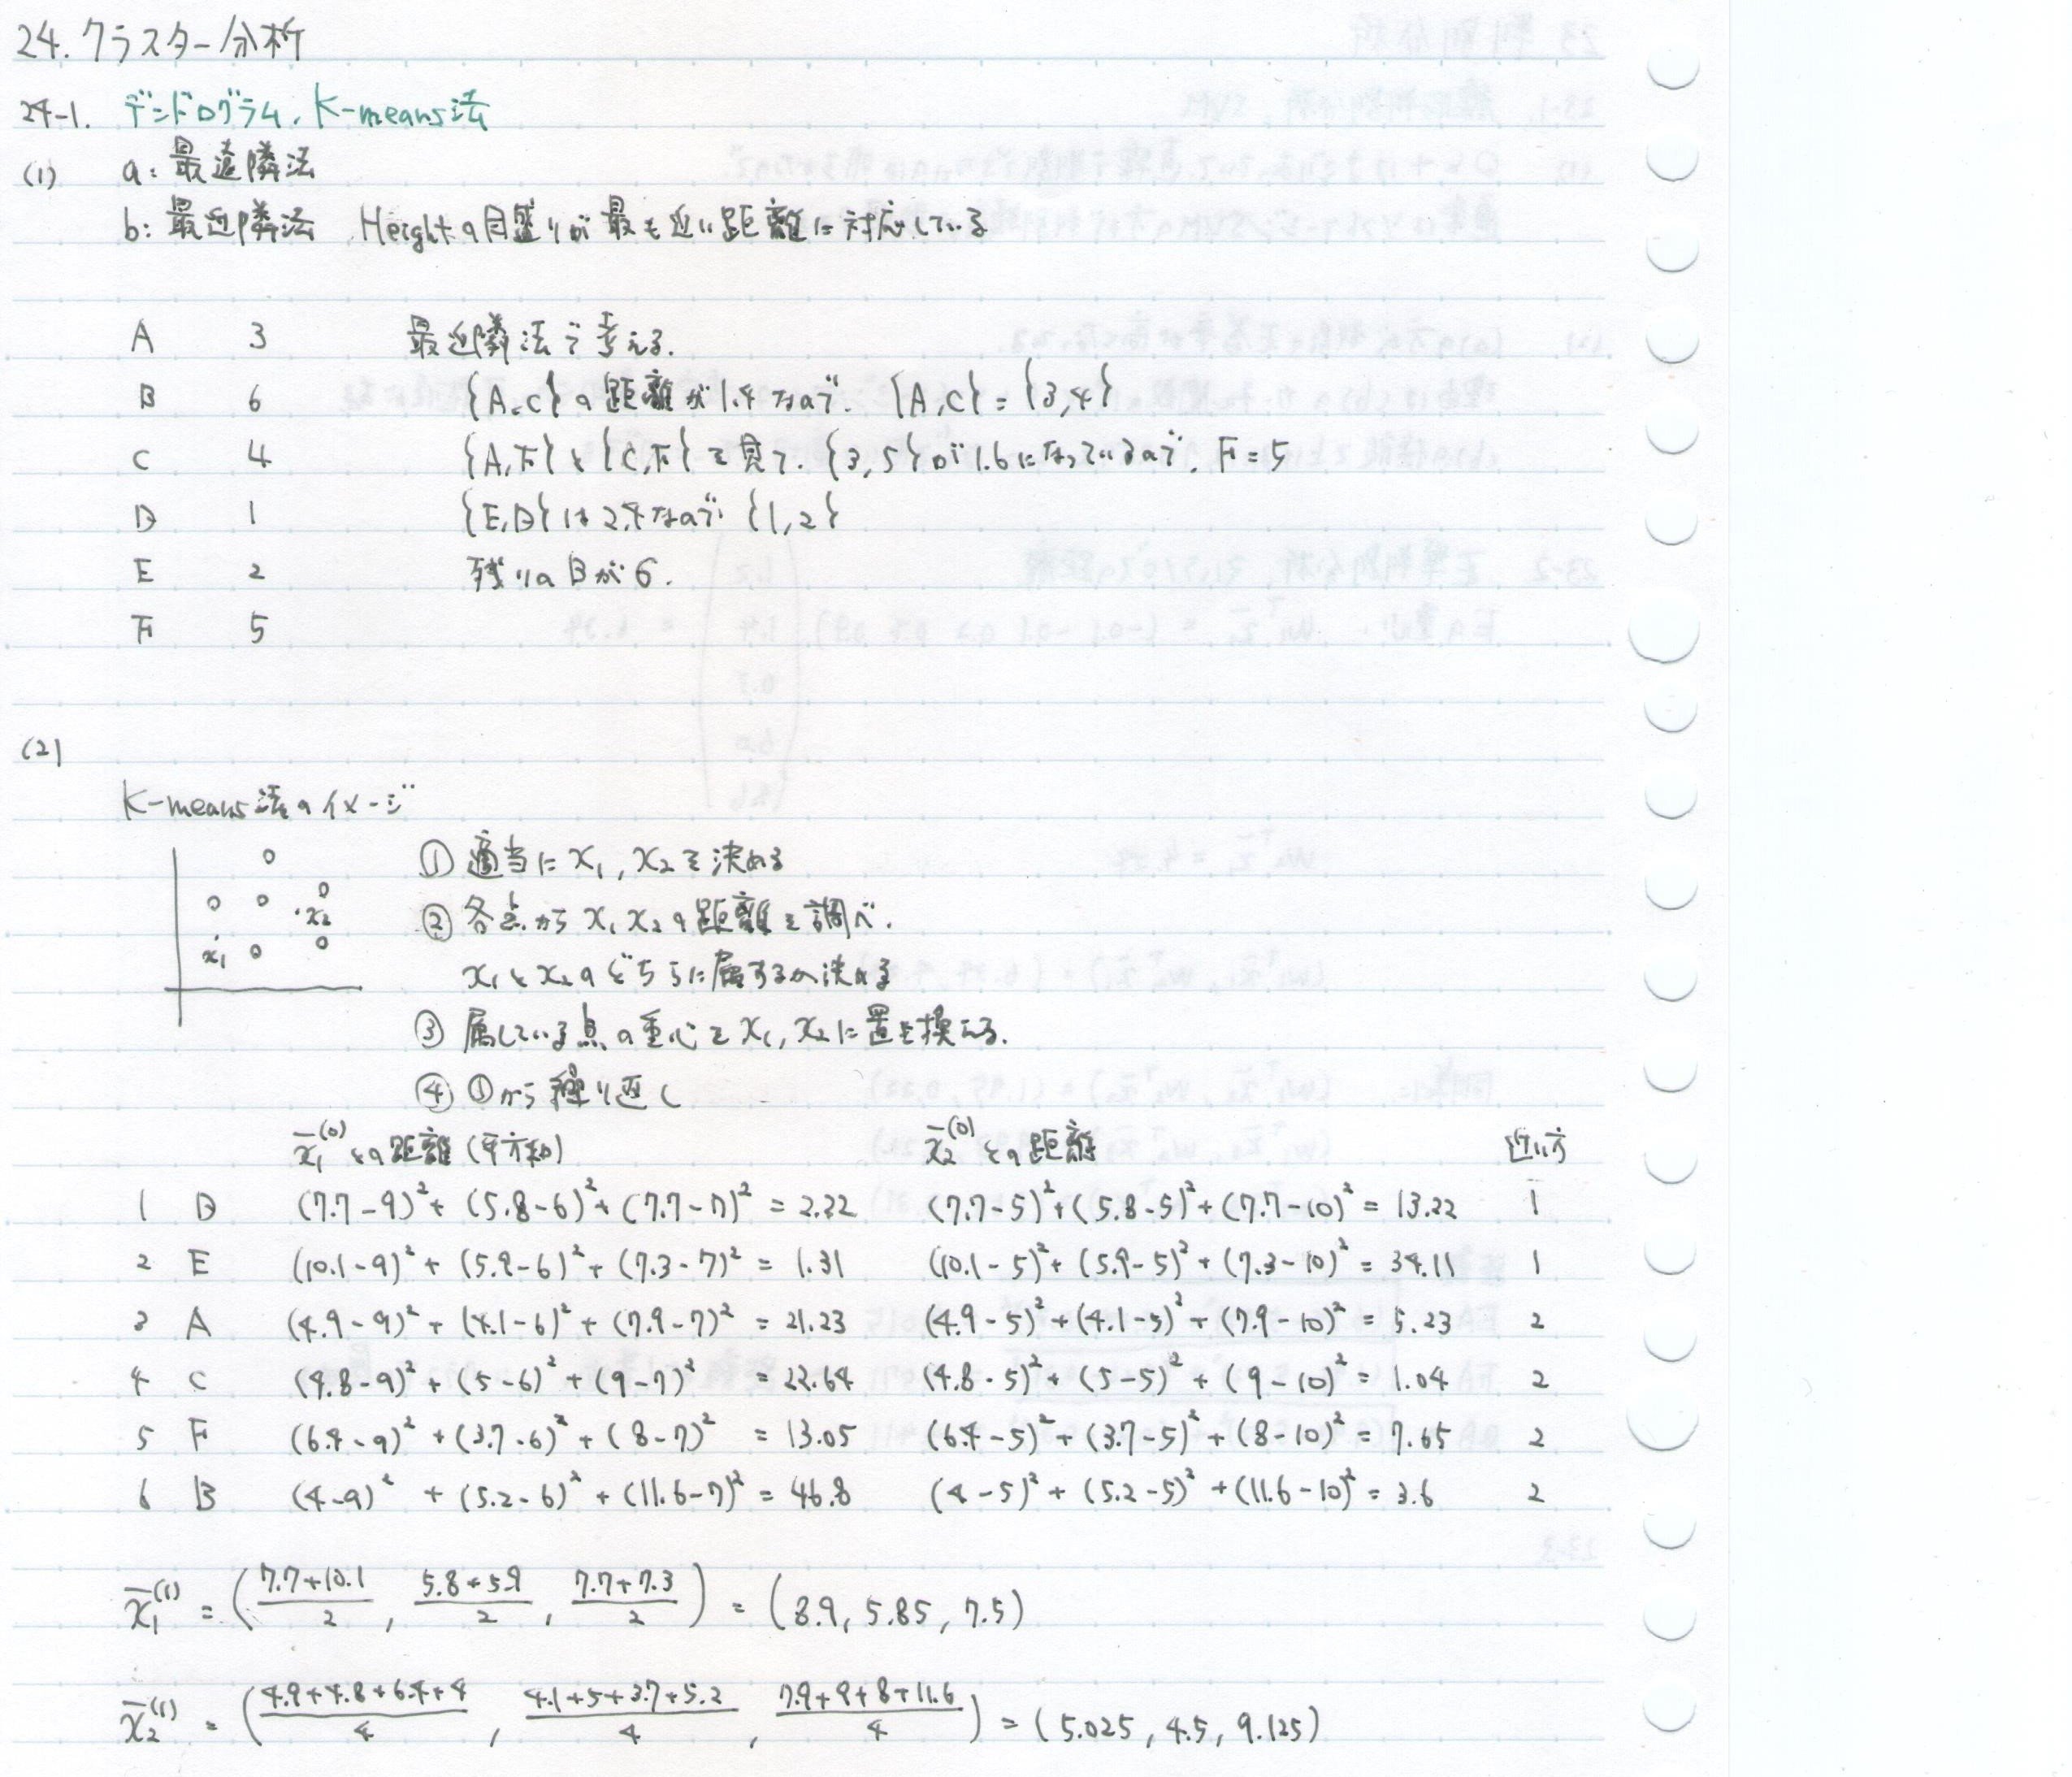 24. クラスター分析
24-1. デンドログラム、K-means法
(1) a: 最遠隣法
b: 最近隣法 Heightの目盛りが最も近い距離に対応している
A 3 最近隣法で考える.
B 6 {A,C}の距離が1.4なので. {A,C} = {3,4}
C 4 {A,F}と{C,F}を見て. {3,5}が1.6になっているので. F=5
D 1 {E,D}は2.4なので {1,2}
E 2 残りのBが6.
F 5
(2)
K-means法のイメージ
① 適当に x1, x2 を決める
② 各点から x1 x2 の距離を調べ.
x1 と x2 のどちらに属するか決める
③ 属している点の重心を x1, x2 に置き換える.
④ ①から繰り返し
x1
x2
x̄1^(0) との距離 (平方和) x̄2^(0) との距離 近い方
1 D (7.7-9)²+(5.8-6)²+(7.7-7)² = 2.22 (7.7-5)²+(5.8-5)²+(7.7-10)² = 13.22 1
2 E (10.1-9)²+(5.9-6)²+(7.3-7)² = 1.31 (10.1-5)²+(5.9-5)²+(7.3-10)² = 34.11 1
3 A (4.9-9)²+(4.1-6)²+(7.9-7)² = 21.23 (4.9-5)²+(4.1-5)²+(7.9-10)² = 5.23 2
4 C (4.8-9)²+(5-6)²+(9-7)² = 22.64 (4.8-5)²+(5-5)²+(9-10)² = 1.04 2
5 F (6.4-9)²+(3.7-6)²+(8-7)² = 13.05 (6.4-5)²+(3.7-5)²+(8-10)² = 7.65 2
6 B (4-9)²+(5.2-6)²+(11.6-7)² = 46.8 (4-5)²+(5.2-5)²+(11.6-10)² = 3.6 2
x̄1^(1) = ((7.7+10.1)/2, (5.8+5.9)/2, (7.7+7.3)/2) = (8.9, 5.85, 7.5)
x̄2^(1) = ((4.9+4.8+6.4+4)/4, (4.1+5+3.7+5.2)/4, (7.9+9+8+11.6)/4) = (5.025, 4.5, 9.125)